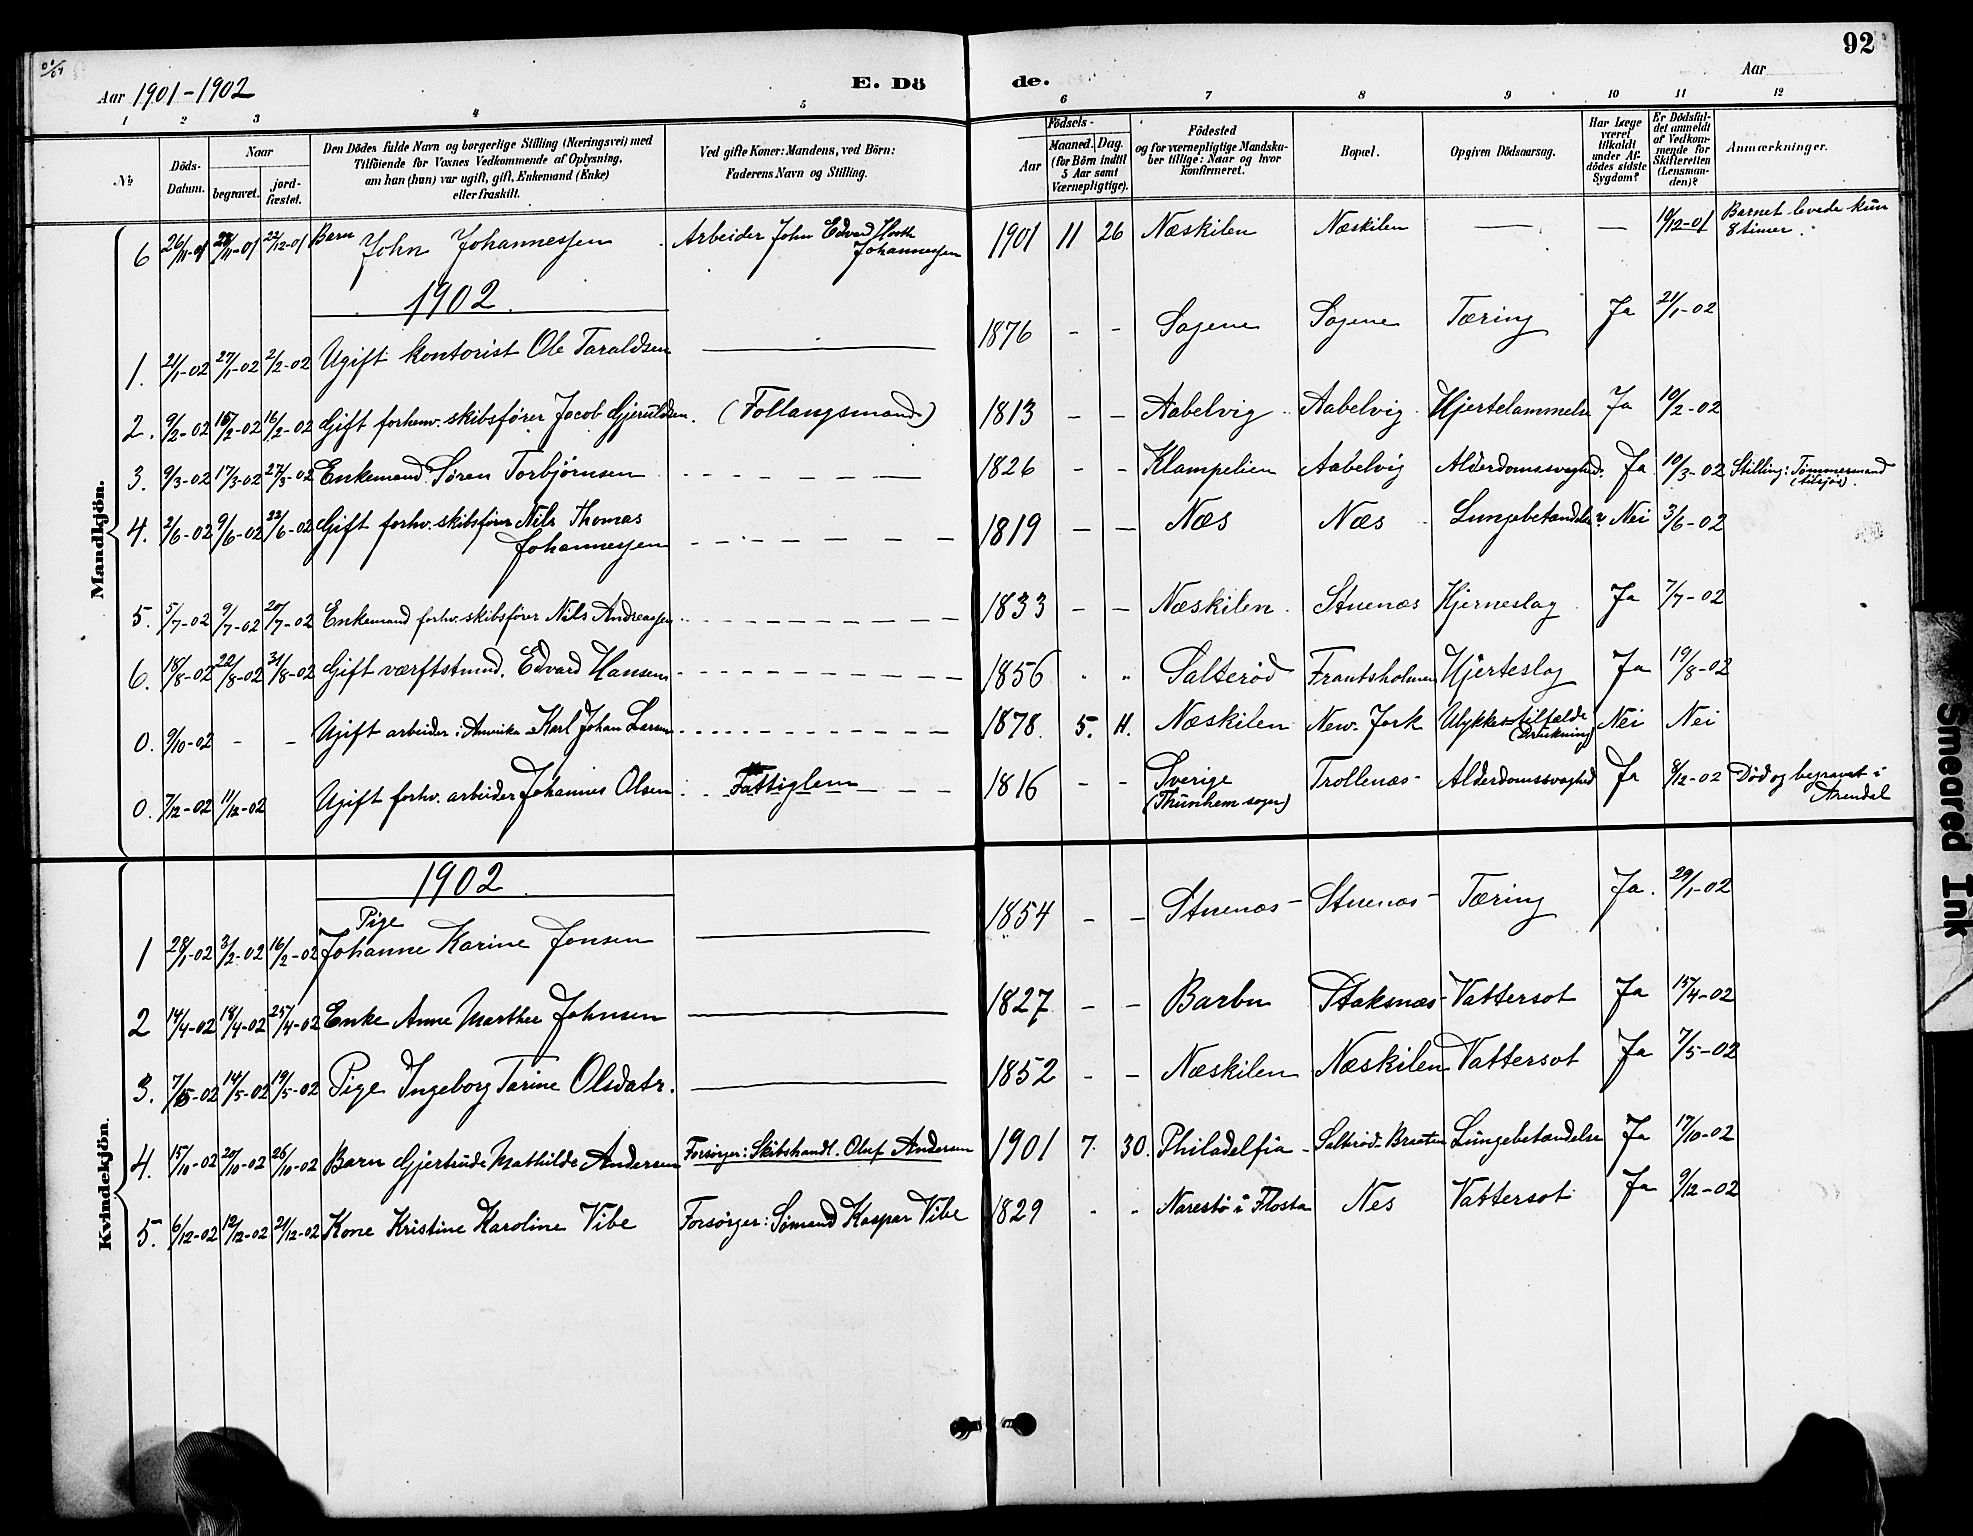 92
Aar 1901-1902 E. Dö de. Aar
1 2 3 4 5 6 7 8 9 10 11 12
No
Döds-Datum.
Naar
begravet.
jord-fæstet.
Den Dödes fulde Navn og borgerlige Stilling (Næringsvei) med
Tilföiende for Voxnes Vedkommende af Oplysning,
om han (hun) var ugift, gift, Enkemand (Enke)
eller fraskilt.
Ved gifte Koner: Mandens, ved Börn:
Faderens Navn og Stilling.
Födsels-
Aar
Maaned. Dag.
(for Börn indtil
5 Aar samt
Værnepligtige).
Födested
og for værnepligtige Mandska-
ber tillige: Naar og hvor
konfirmeret.
Bopæl.
Opgiven Dödsaarsag.
Har Læge
været
tilkaldt
under Af-
dödes sidste
Sygdom?
Er Dödsfal-
det anmeldt
af Vedkom-
mende for
Skifteretten
(Lensman-
den)?
Anmærkninger.
Mandkjön.
6 26/11-01 28/11-01 22/12-01 Barn John Johannessen Arbeider John Edvard Johannessen 1901 11 26 Næskilen Næskilen — — 10/12-01 Barnet levede kun 8 timer.
1902.
1. 21/1-02 27/1-02 2/2-02 Ugift kontorist Ole Taraldsen — 1876 - - Sagene Sagene Tæring Ja 21/1-02
2. 9/2-02 15/2-02 16/2-02 Gift forhenv. skibsfører Jacob Gjeruldsen. (Follaugsmand) 1813 - - Aabelvig Aabelvig Hjertelammelse Ja 10/2-02
3. 9/3-02 17/3-02 27/3-02 Enkemand Søren Torbjørnsen - - - - 1826 - - Klampelien Aabelvig Alderdomssvaghed. Ja 10/3-02 Stilling: Tømmermand (tilsjøs).
4. 2/6-02 9/6-02 22/6-02 Gift forhv. skibsfører Nils Thomas Johannessen - - - - 1819 - - Næs Næs Lungebetændelse? Nei 3/6-02
5. 5/7-02 9/7-02 20/7-02 Enkemand forhv. skibsfører Nils Andreassen - - - - 1833 - - Næskilen Stuenæs Hjerneslag Ja 7/7-02
6. 18/8-02 22/8-02 31/8-02 Gift værftstmd. Edvard Hansen - - - - 1856 " " Salterød Frantsholmen Hjerteslag Ja 19/8-02
0. 9/10-02 - - Ugift arbeider i Amerika Karl Johan Larsen - - - - 1878. 5. 11. Næskilen New-Jork Ulykkestilfælde (Drukning) Nei Nei
0. 7/12-02 11/12-02 Ugift forhv. arbeider Johannes Olsen. Fattiglem 1816 - - Sverige (Thunhem sogn) Trollenæs- Alderdomssvaghed Ja 8/12-02 Død og begravet i Arendal
Kvindekjön.
1902.
1 28/1-02 3/2-02 16/2-02 Pige Johanne Karine Jensen — 1854 - - Stuenæs- Stuenæs- Tæring Ja. 29/1-02
2 14/4-02 18/4-02 25/4-02 Enke Anne Marthee Johnsen — 1827 - - Barbu Staksnæs- Vattersot Ja 15/4-02
3. 7/5-02 14/5-02 19/5-02 Pige Ingeborg Tarine Olsdatr. — 1852 - - Næskilen Næskilen Vattersot Ja 7/5-02
4. 15/10-02 20/10-02 26/10-02 Barn Gjertrude Mathilde Andersen Forsørger: Skibshandl. Oluf Andersen 1901 7. 30. Philadelfia- Saltrød-Braaten Lungebetændelse Ja 17/10-02
5. 6/12-02 12/12-02 21/12-02 Kone Kristine Karoline Vibe Forsørger: Sømand Kaspar Vibe 1829 " " Narestø i Flosta Nes Vattersot Ja 9/12-02
Smeared Ink